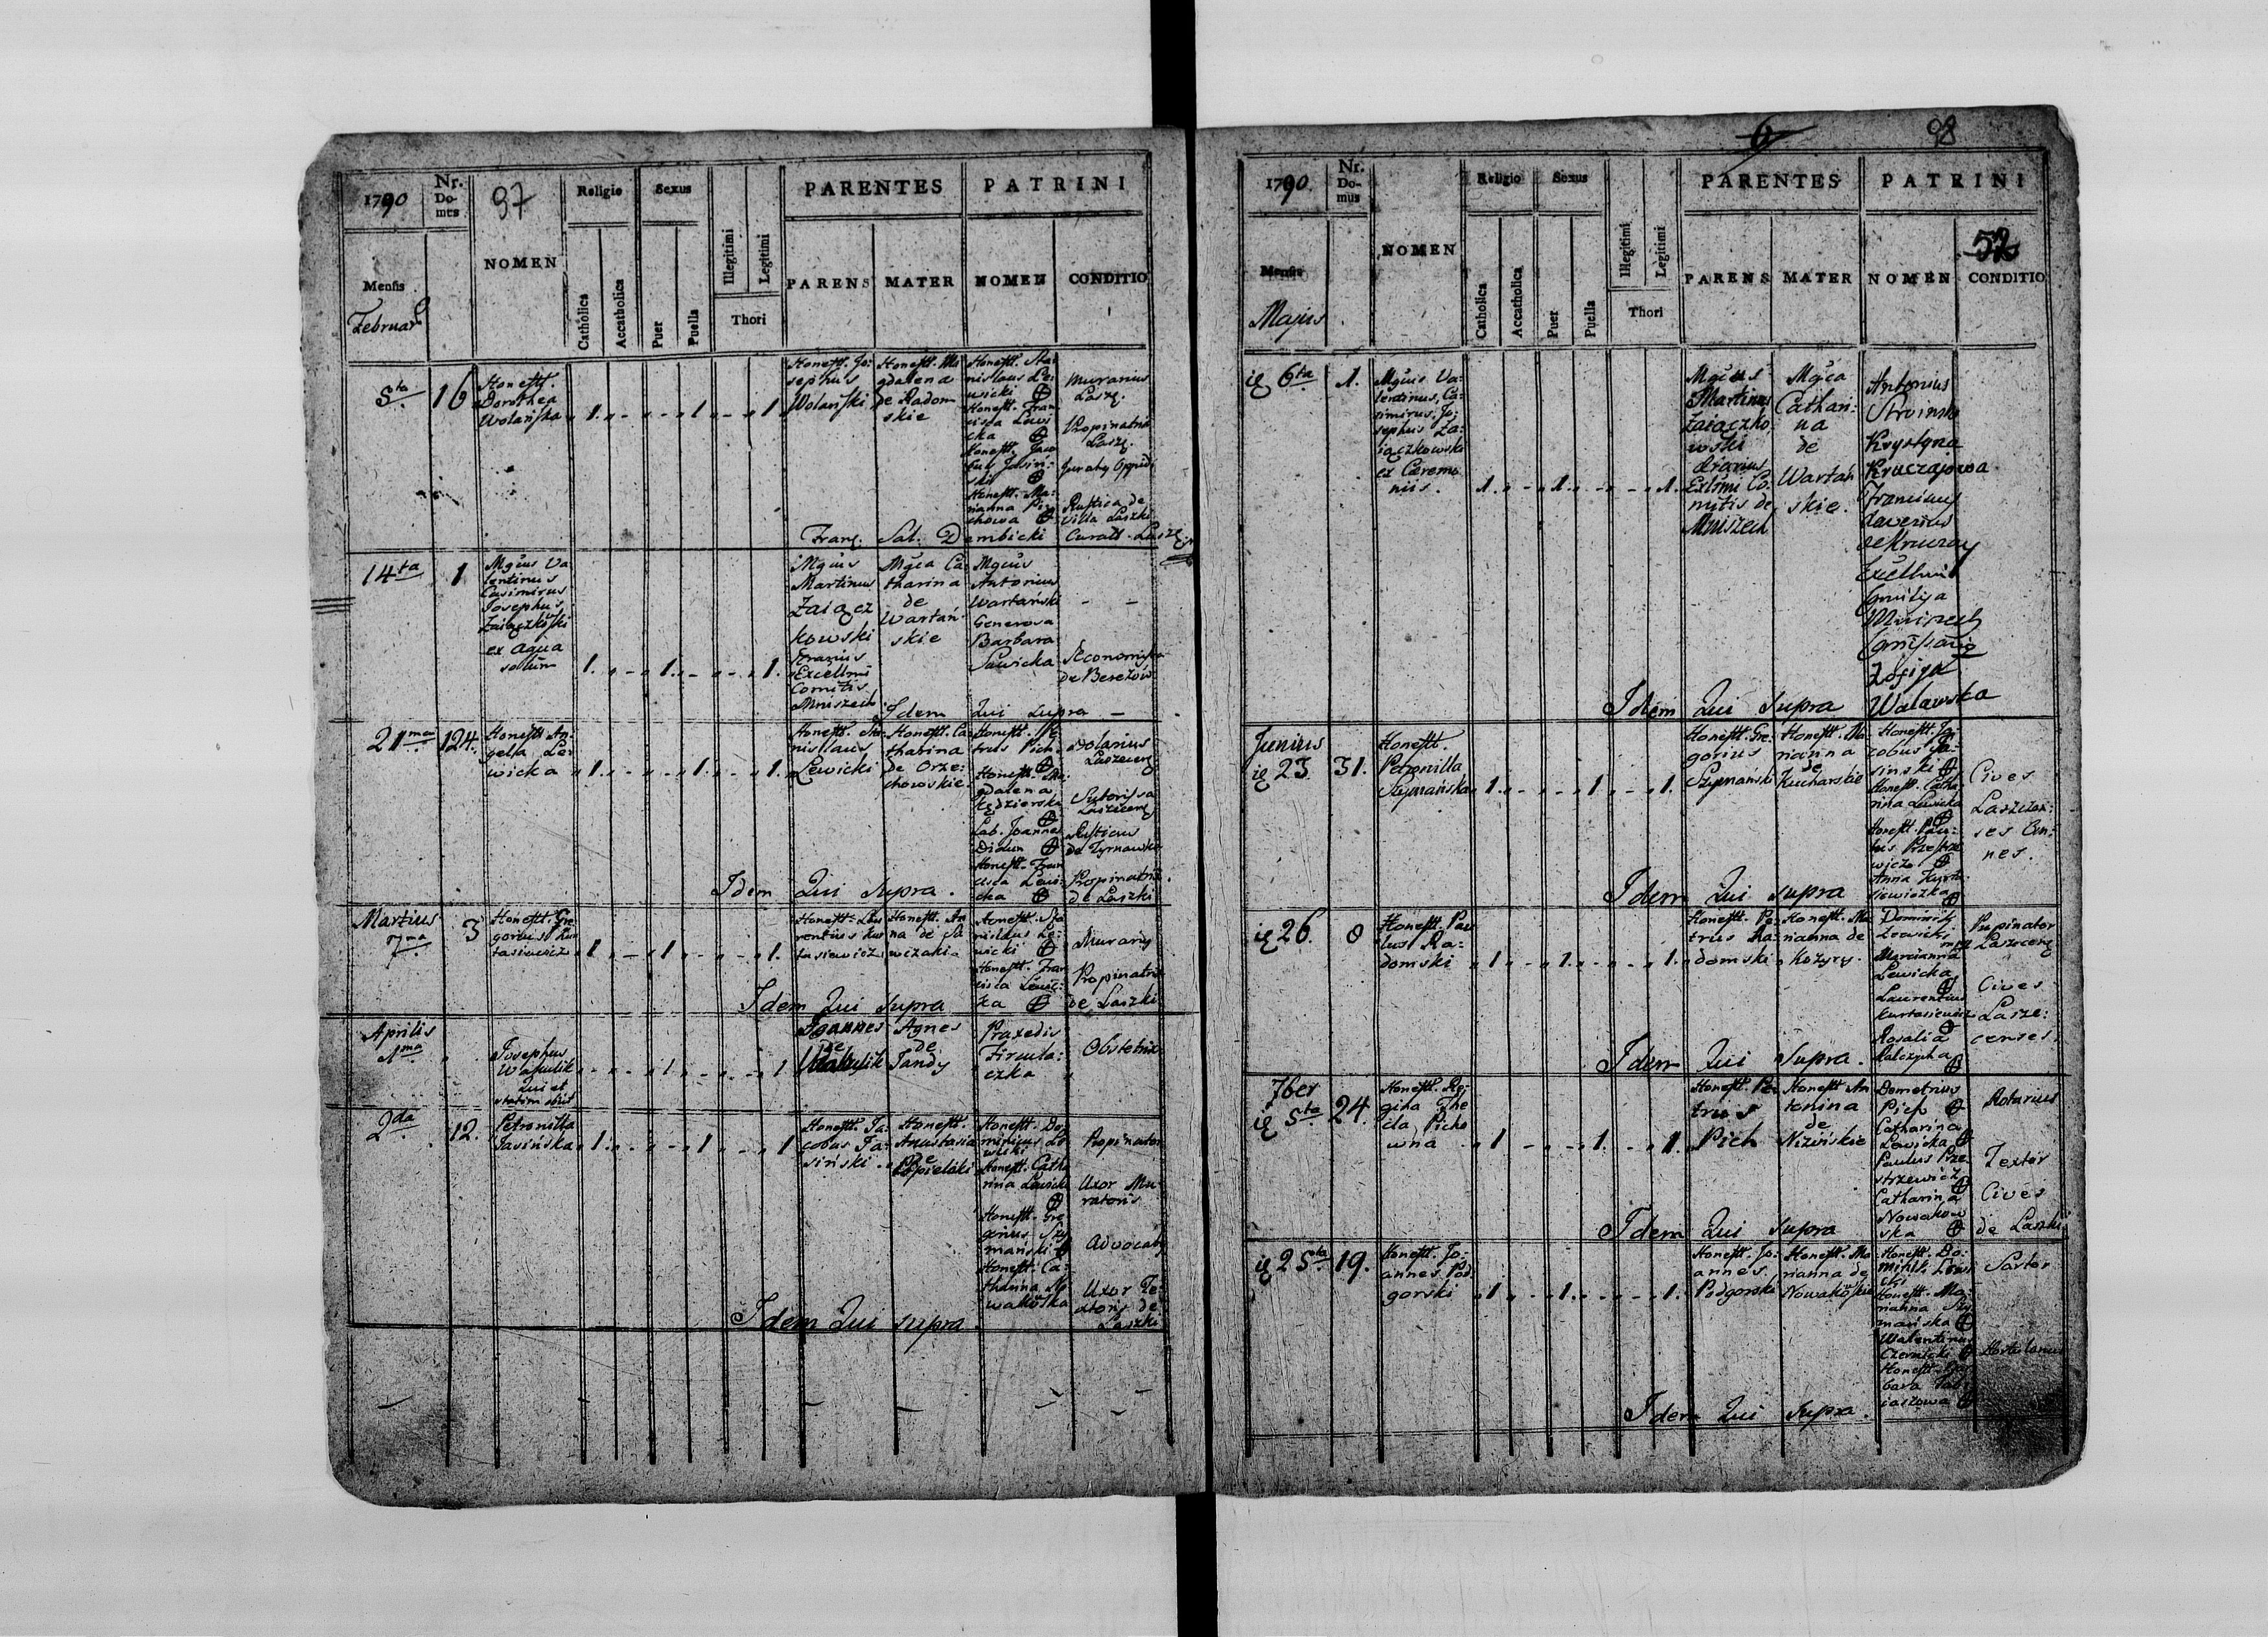 1790
Nr. Domes
97
NOMEN
Religio
Sexus
Catholica
Accatholica
Puer
Puella
Illegitimi
Legitimi
Thori
PARENTES
PATRINI
PARENS
MATER
NOMEN
CONDITIO
Mensis
Februar
5ta
16
Honestt.
Dorothea
Wolańska
1
1
1
Honestt. Jo:
sephus
Wolański
Honestt. Ma
gdalena
de Radom
skie
Honestt. Sta:
nislaus Le:
wicki
Honestt. Fran
cisca Lewi
cka
Honestt. Jaco
bus Jasiń:
ski
Honestt. Ma:
rianna Pi
chowa
Murarius
Laszc.
Propinatrix
Laszc.
Rustica de
Villa Laszki
Franc. Sal. Dembicki Curatt. Laszc
14ta
1
Mgũs Va
lentinus
Casimirus
Josephus
Zaiączkowski
ex aqua
solum
1
1
1
Mgũs
Martinus
Zaiącz
kowski
Excellmi
Comitis
Mniszech
Mgca Ca
tharina
de
Wartań
skie
Mgũs
Antonius
Wartański
Generosa
Barbara
Sawicka
Oeconomissa
de Berezow
Idem Qui supra
21ma
124.
Honestt An
gella Le:
wicka
1
1
1
Honestt. Sta
nislaus
Lewicki
Honestt. Ca
tharina
de Orze:
chowskie
Honestt. Pe
trus Pich
Honestt. Ma:
gdalena
Kędzierska
Lab. Joannes
Didun
Honestt. Fran
cisca Lewi:
cka
Dolarius
Laszcenę
Sutorissa
Laszcenę
Rusticus
de Tyrnawka
Propinatrix
de Laszki
Idem Qui supra.
Martius
7ma
3
Honestt. Gre
gorius Kur
tasiewicz
1
1
1
Honestt. Lau
rentius Kur
tasiewicz
Honestt. An
na de Sa
wczaki
Honestt. Sta
nislaus Le:
wicki
Honestt. Fran
cisca Lewic:
ka
Murariy
Propinatrix
de Laszki
Idem Qui supra
Aprilis
1ma
Josephus
Wasylik
Qui et
statim obiit
1
1
Joannes
Wasylik
Agnes
de
Jandy
Praxedis
Zirnula:
czka
Obstetrix
2da
12.
Petronilla
Jasińska
1
1
1
Honestt. Ja
cobus Ja:
siński
Honestt.
Anastasia
de
Popielaki
Honestt. Do
minicus Le
wicki
Honestt. Catha
rina Lewicki
Honestt. Gre
gorius Szy
mański
Honestt. Ca:
tharina No
wakowska
Propinator
Uxor Mu
ratoris
Advocaty
Uxor Te:
xtoris de
Laszki
Idem Qui supra
6
98
1790.
Nr. Domus
NOMEN
Religio
Sexus
Catholica
Accatholica
Puer
Puella
Illegitimi
Legitimi
Thori
PARENTES
PATRINI
52
PARENS
MATER
NOMEN
CONDITIO
Mensis
Majus
ię 6ta
1.
Mgũs Va:
lentinus, Ca:
simirus, Jo:
sephus Za:
iączkowski
ex Ceremo
niis.
1
1
1
Mgũs
Martinus
Zaiączko
wski
Exlmi Co:
mitis de
Mniszech
Mgca
Cathari:
na
de
Wartań
skie.
Antonius
Stroinski
Krystyna
Kruczajowa
Franciscus
Xaverius
Mniszech
Zofija
Walawska
Idem Qui supra
Junius
ię 23
31.
Honestt.
Petronilla
Szymańska
1
1
1.
Honestt. Gre:
gorius
Szymański
Honestt. Ma:
rianna
de
Kucharskie
Honestt. Ja:
cobus Ja:
sinski
Honestt. Catha
rina Lewicka
Honestt. Pau:
lus Przestrze
wicz
Anna Kurta
siewiczka
Cives
Laszczen:
ses Om:
nes.
Idem Qui supra
ię 26.
8
Honestt. Pau
lus Ra:
domski
1
1
1
Honestt. Pe:
trus Ra:
domski
Honestt. Ma
rianna de
Kozyry.
Dominik
Lewicki
Marcianna
Lewicka
Laurentius
Kurtasiewicz
Rosalia
Kalczycka
Propinator
Laszcenę
Cives
Laszc:
censes.
Idem Qui supra.
7ber
ię 5ta
24.
Honestt. Re:
gina The
cla Picho
wna
1
1
1.
Honestt. Pe
trus
Pich
Honestt An
tonina
de
Nizińskie
Demetrius
Pies
Catharina
Lewicka
Paulus Prze
strzewicz
Catharina
Nowakow
ska
Rotarius
Textor
Cives
de Laszki
Idem Qui supra
ię 25ta
19.
Honestt. Jo:
annes Pod
gorski
1
1
1.
Honestt. Jo:
annes
Podgorski
Honestt. Ma
rianna de
Nowakoskie
Honestt. Do:
minik. Lewi
cki
Honestt. Ma:
rianna Szy
mańska
Walentinus
Czernicki
Honestt. Bar
bara Jas
Sartor
Hortulanus
Idem Qui supra.